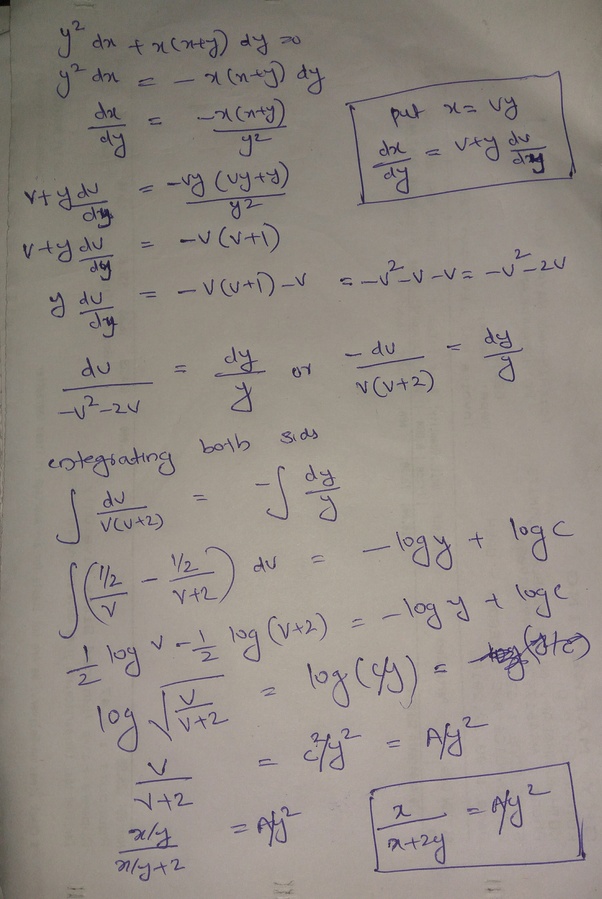 y² dx + x(x+y) dy = 0
y² dx = - x(x+y) dy
dx/dy = -x(x+y)/y²
put x = vy
dx/dy = v+y dv/dy
v+y dv/dy = -vy(vy+y)/y²
v+y dv/dy = -v(v+1)
y dv/dy = -v(v+1)-v = -v²-v-v = -v²-2v
dv/-v²-2v = dy/y or -dv/v(v+2) = dy/y
integrating both sids
∫ dv/v(v+2) = -∫ dy/y
∫(1/2/v - 1/2/v+2) dv = -log y + log c
1/2 log v - 1/2 log(v+2) = -log y + log c
log √v/v+2 = log(c/y) =
v/v+2 = c²/y² = A/y²
x/y/x/y+2 = A/y²
x/x+2y = A/y²